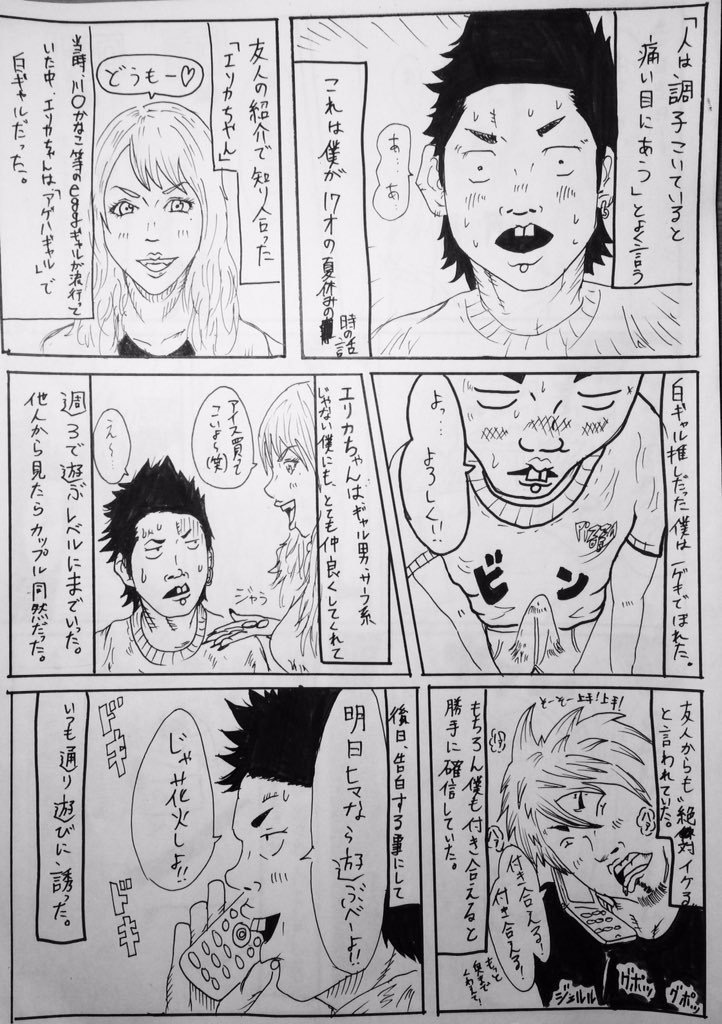 「人は、調子こいていると
痛い目にあう」とよく言う
あ…あ
これは僕が17才の夏休みの
時の話
友人の紹介で知り合った
「エリカちゃん」
どうもー♡
当時、川〇かなこ等のeggギャルが流行って
いた中、エリカちゃんは「アゲハギャル」で
白ギャルだった。
白ギャル推しだった僕は一ゲキでほれた。
よっ…
よろしく!!
ビン
エリカちゃんは、ギャル男、サーフ系
じゃない僕にも、とても仲良くしてくれて
アイス買って
こいよ〜(笑)
え〜…
ジャラ
週3で遊ぶレベルにまでいった。
他人から見たらカップル同然だった。
友人からも"絶対イケる
と、言われていた。
そーそー上手!上手!
もちろん僕も付き合えると
勝手に確信していた。
付き合える!
付き合える!
もっと
ジュルル
グポッ
グポッ
後日、告白する事にして
明日ヒマなら遊ぶべーよ!!
じゃ花火しよ!!
ドキ
ドキ
いつも通り遊びに誘った。